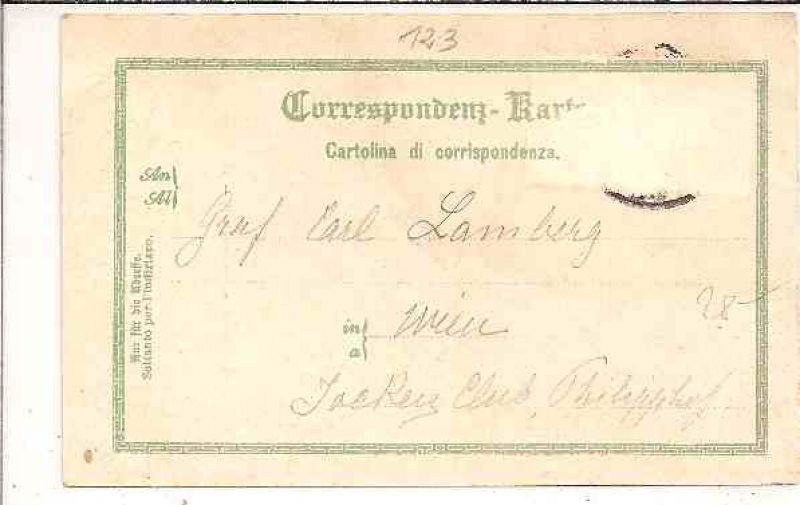 123
Correspondenz-Karte
Cartolina di corrispondenza.
An
Al
Graf Carl Lamberg
in
a
Wien
28
Jockey Club, Philipphof
Nur für die Adresse.
Soltanto per l'indirizzo.